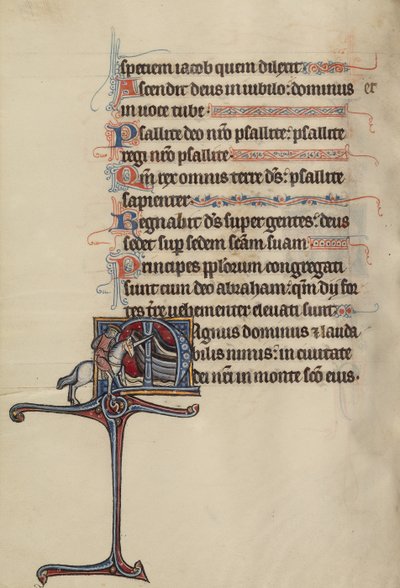 speciem iacob quem dilexit.
Ascendit deus in iubilo: dominus et
in uoce tube.
Psallite deo nro psallite: psallite
regi nro psallite.
Qm rex omnis terre ds: psallite
sapienter.
Regnabit ds super gentes: deus
sedet sup sedem scam suam.
Principes pplorum congregati
sunt cum deo abraham: qm dij for
tes tre uehementer eleuati sunt.
Magnus dominus & lauda
bilis nimis: in ciuitate
dei nri in monte sco eius.